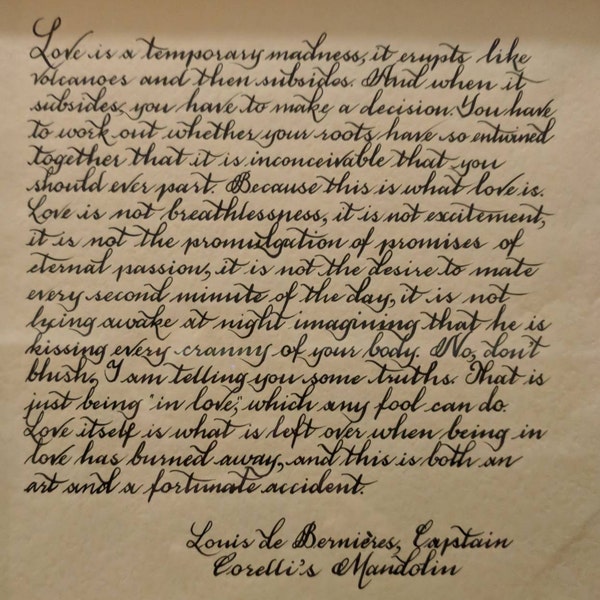 Love is a temporary madness, it erupts like
volcanoes and then subsides. And when it
subsides, you have to make a decision. You have
to work out whether your roots have so entwined
together that it is inconceivable that you
should ever part. Because this is what love is.
Love is not breathlesspness, it is not excitement,
it is not the promulgation of promises of
eternal passion, it is not the desire to mate
every second minute of the day, it is not
lying awake at night imagining that he is
kissing every cranny of your body. No, don't
blush, I am telling you some truths. That is
just being "in love", which any fool can do.
Love itself is what is left over when being in
love has burned away, and this is both an
art and a fortunate accident.
Louis de Bernières, Captain
Corelli's Mandolin